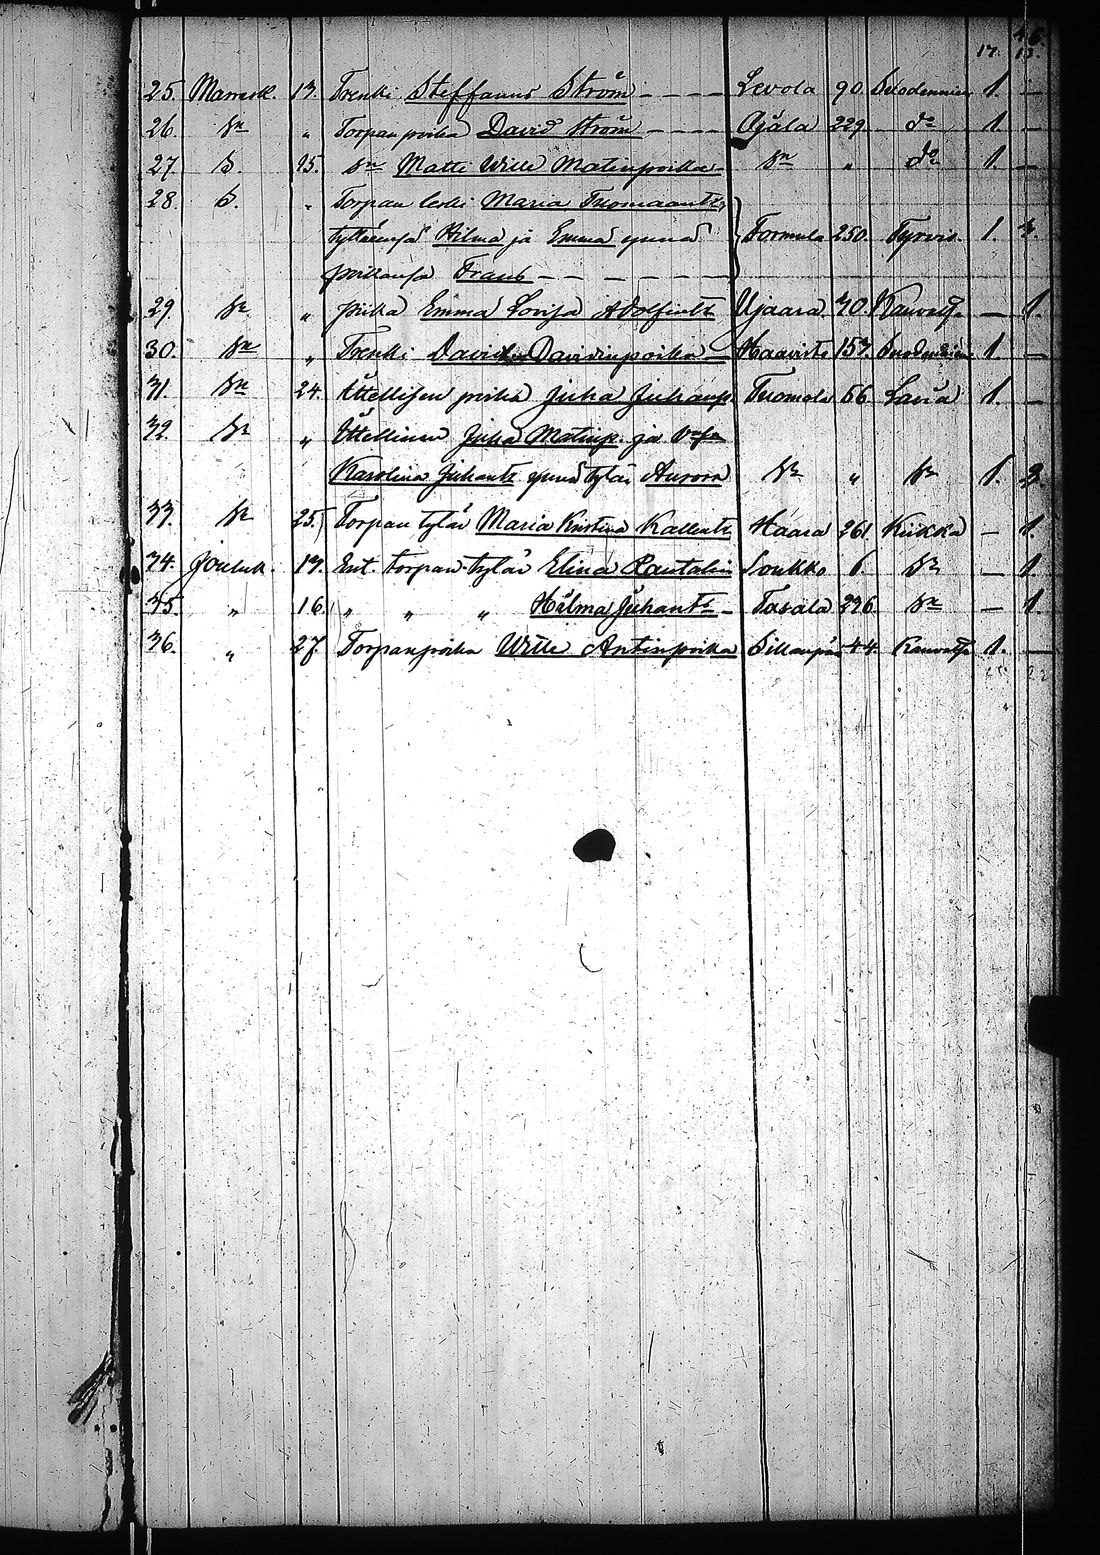 46.
17. 13.
25. Marrask. 13. Trenki Steffanus Ström Levola 90. 1. —
26. Dn „ Torpanpoika David Ström Ojäla 229. do 1. —
27. D. 15. Dn Matti Wille Matinpoika Dn „ do 1. —
28. D. „ Torpan leski Maria Tuomaantr
tyttärensä Hilma ja Emma ynnä Formula 250. Tyrvis. 1. 3.
poikansa Frans
29. Dn „ piika Emma Lovisa Adolfintr Ujaara 70. — 1.
30. Dn „ Trenki David Davidinpoika Haavisto 157. 1. —
31. Dn 24. Ittellisen poika Juha Juhanp. Tuomola 56. Lavia 1. —
32. Dn „ Ittellinen Juha Matinp. ja
Karolina Juhantr ynnä tytär Aurora Dn „ Dn 1. 2.
33. Dn 25. Torpan tytär Maria Kristina Kallentr Haara 261. Kiikka — 1.
34. Jouluk. 13. Ent. torpan tytär Elina Rautalin Soukko 6. Dn — 1.
35. „ 16. „ „ „ Hilma Juhantr Tasala 236. Dn — 1.
36. „ 27. Torpanpoika Wille Antinpoika Sillanpää 44. 1. —